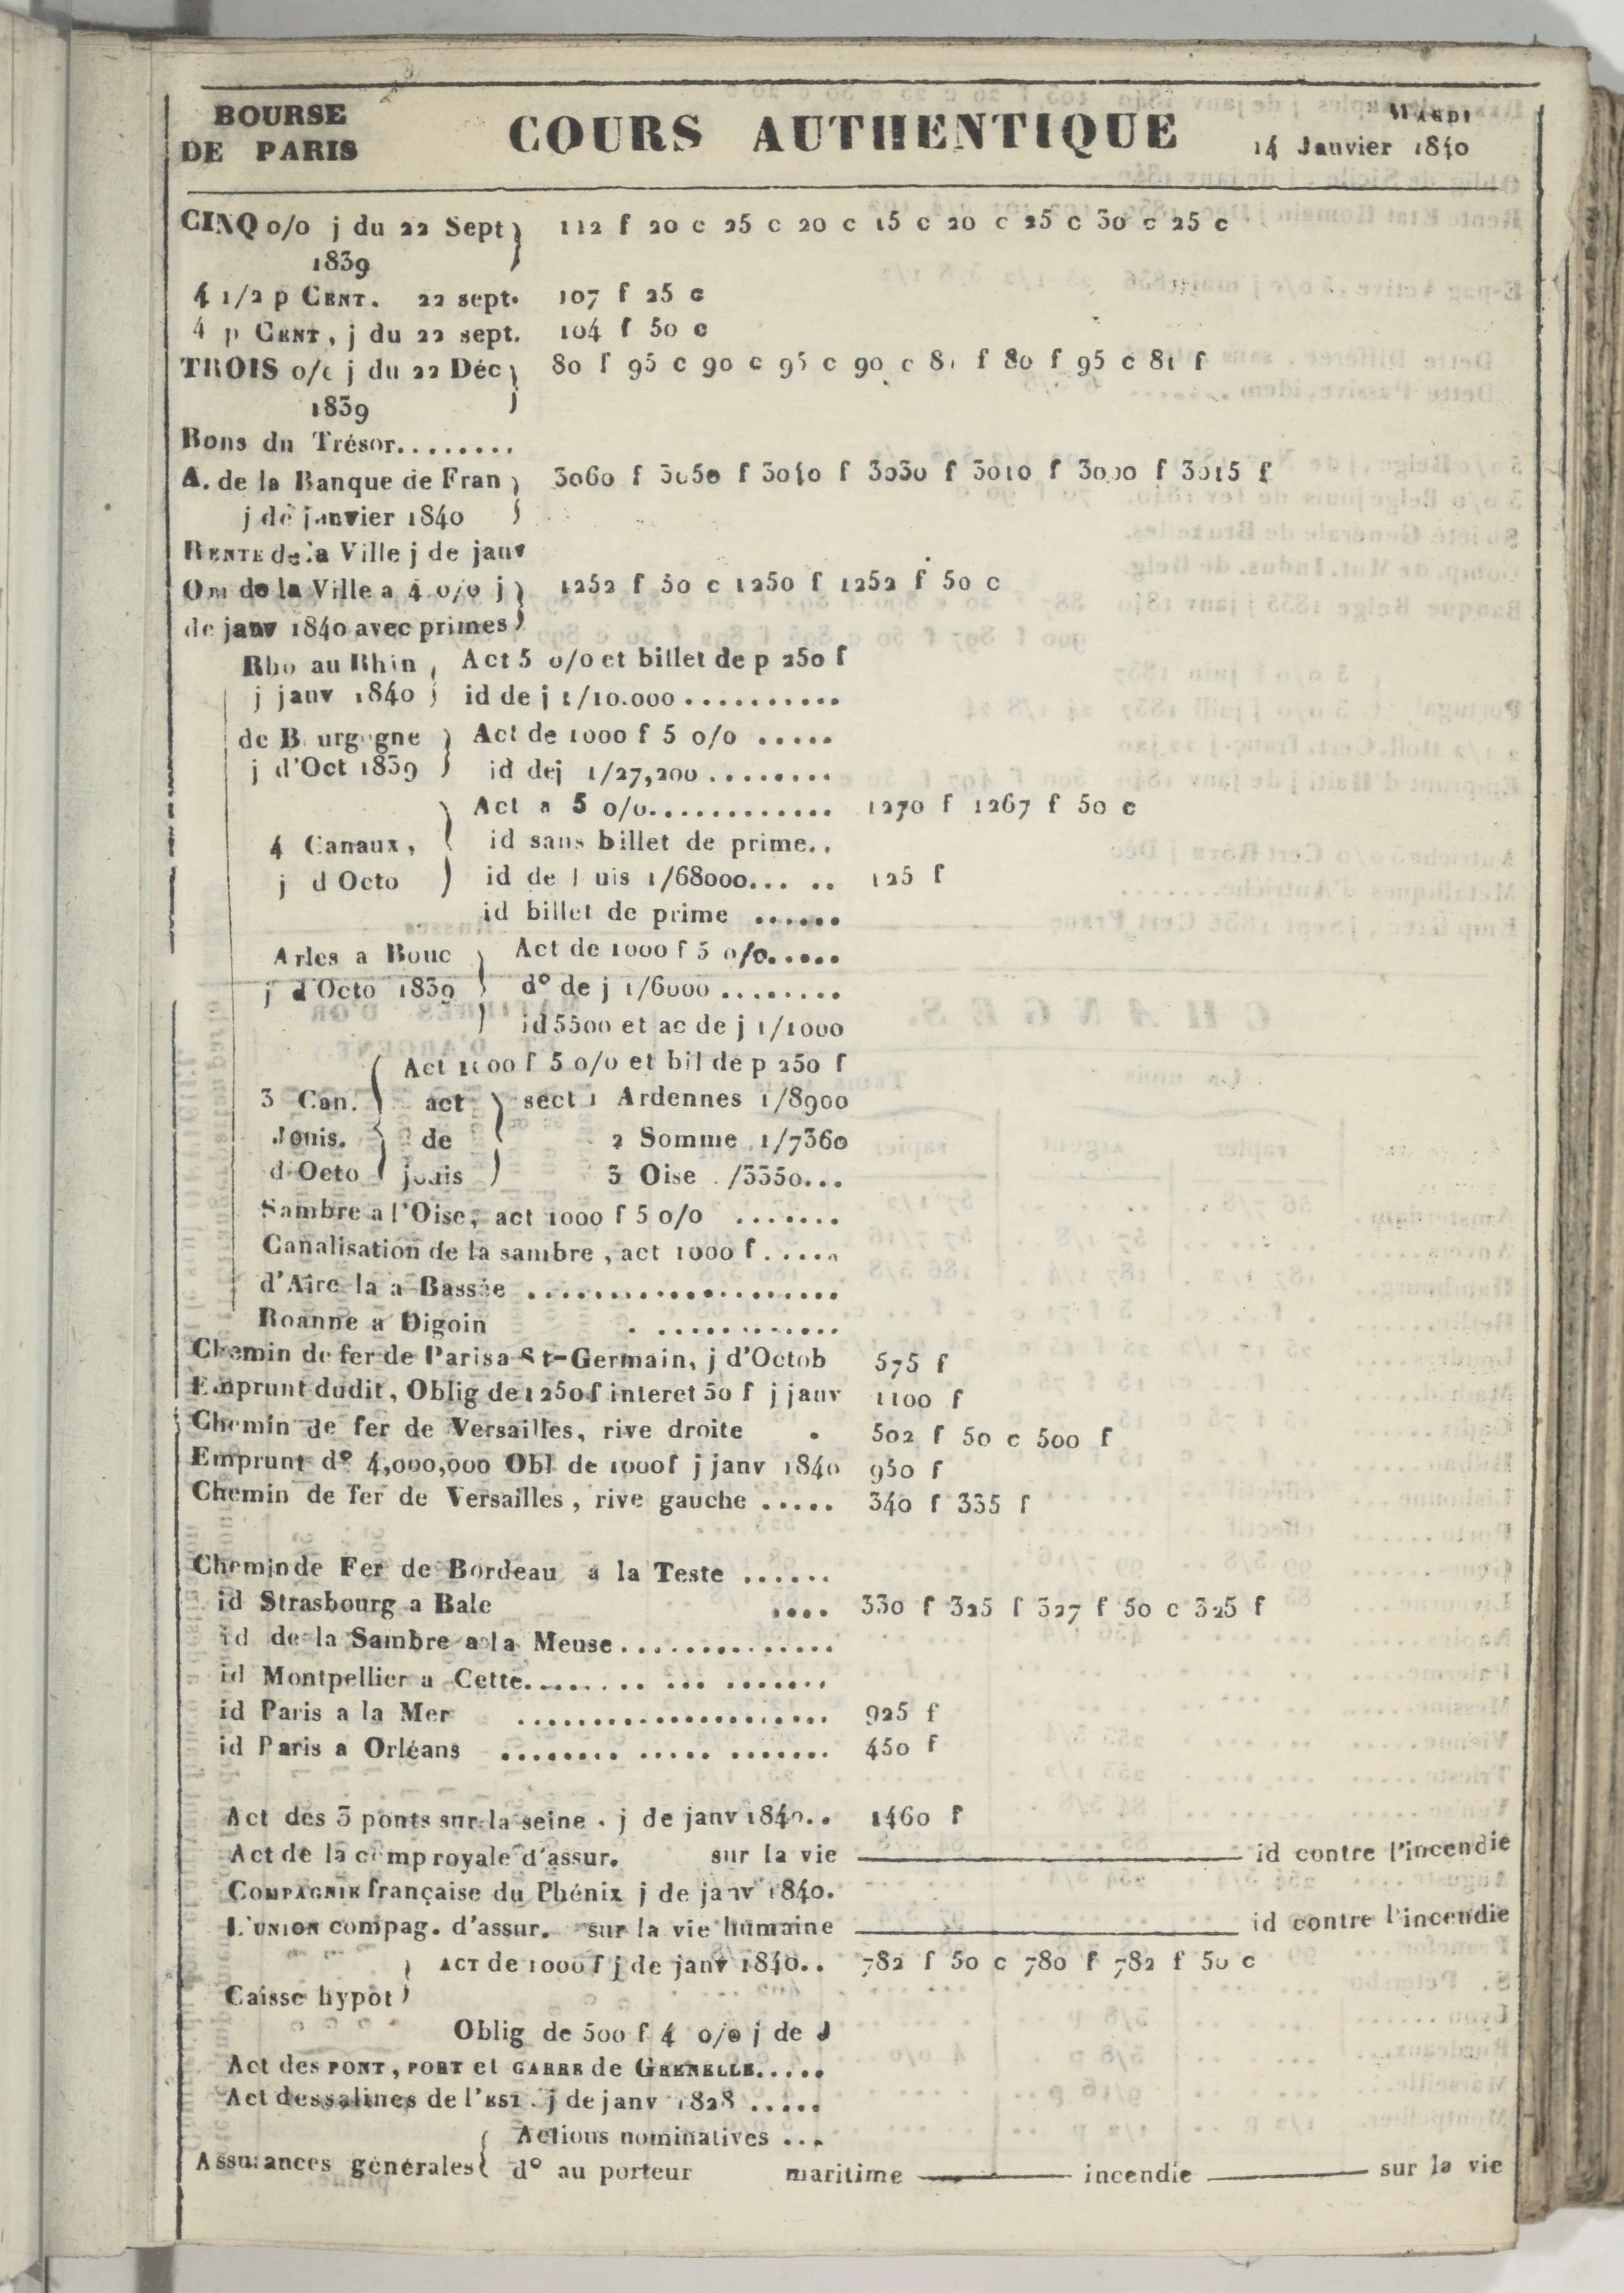 BOURSE
DE PARIS
COURS AUTHENTIQUE
MARDI
14 Janvier 1840
CINQ o/o j du 22 Sept 112 f 20 c 25 c 20 c 15 c 20 c 25 c 30 c 25 c
1839
4 1/2 p CENT. 22 sept. 107 f 25 c
4 p CENT, j du 22 sept. 104 f 50 c
TROIS o/o j du 22 Déc 80 f 95 c 90 c 95 c 90 c 81 f 80 f 95 c 81 f
1839
Bons du Trésor........
A. de la Banque de Fran 3060 f 3050 f 3040 f 3030 f 3010 f 3000 f 3015 f
j de janvier 1840
RENTE de la Ville j de janv
de la Ville a 4 o/o j 1252 f 50 c 1250 f 1252 f 50 c
de janv 1840 avec primes
Rho au Rhin Act 5 o/o et billet de p 250 f
j janv 1840 id de j 1/10.000 ..........
de B urgogne Act de 1000 f 5 o/o .....
j d'Oct 1839 id dej 1/27,200 ........
Act a 5 o/o............ 1270 f 1267 f 50 c
4 Canaux, id sans billet de prime..
j d Octo id de j uis 1/68000... .. 125 f
id billet de prime ......
Arles a Bouc Act de 1000 f 5 o/o.....
j d Octo 1839 d° de j 1/6000 ........
id 5500 et ac de j 1/1000
Act 1000 f 5 o/o et bil de p 250 f
3 Can. act sect 1 Ardennes 1/8900
Jouis. de 2 Somme 1/7360
d Octo jouis 3 Oise /3350...
Sambre a l'Oise, act 1000 f 5 o/o .......
Canalisation de la sambre, act 1000 f.....
d'Aire la a Bassée ...................
Roanne a Digoin . ............
Chemin de fer de Paris a St-Germain, j d'Octob 575 f
Emprunt dudit, Oblig de 1250 f interet 50 f j janv 1100 f
Chemin de fer de Versailles, rive droite . 502 f 50 c 500 f
Emprunt d° 4,000,000 Obl de 1000f j janv 1840 950 f
Chemin de fer de Versailles, rive gauche ..... 340 f 335 f
Chemin de Fer de Bordeau a la Teste ......
id Strasbourg a Bale .... 330 f 325 f 327 f 50 c 325 f
id de la Sambre a la Meuse..............
id Montpellier a Cette........ ... .......
id Paris a la Mer ..................... 925 f
id Paris a Orléans ........ ..... ....... 450 f
Act des 3 ponts sur la seine. j de janv 1840.. 1460 f
Act de la comp royale d'assur. sur la vie id contre l'incendie
COMPAGNIE française du Phénix j de janv 1840.
L'UNION compag. d'assur. sur la vie humaine id contre l'incendie
ACT de 1000 f j de janv 1840.. 782 f 50 c 780 f 782 f 50 c
Caisse hypot
Oblig de 500 f 4 o/o j de J
Act des PONT, PORT et GARRE de GRENELLE.....
Act des salines de l'EST. j de janv 1828 .....
Actions nominatives ...
Assurances générales d° au porteur maritime incendie sur la vie